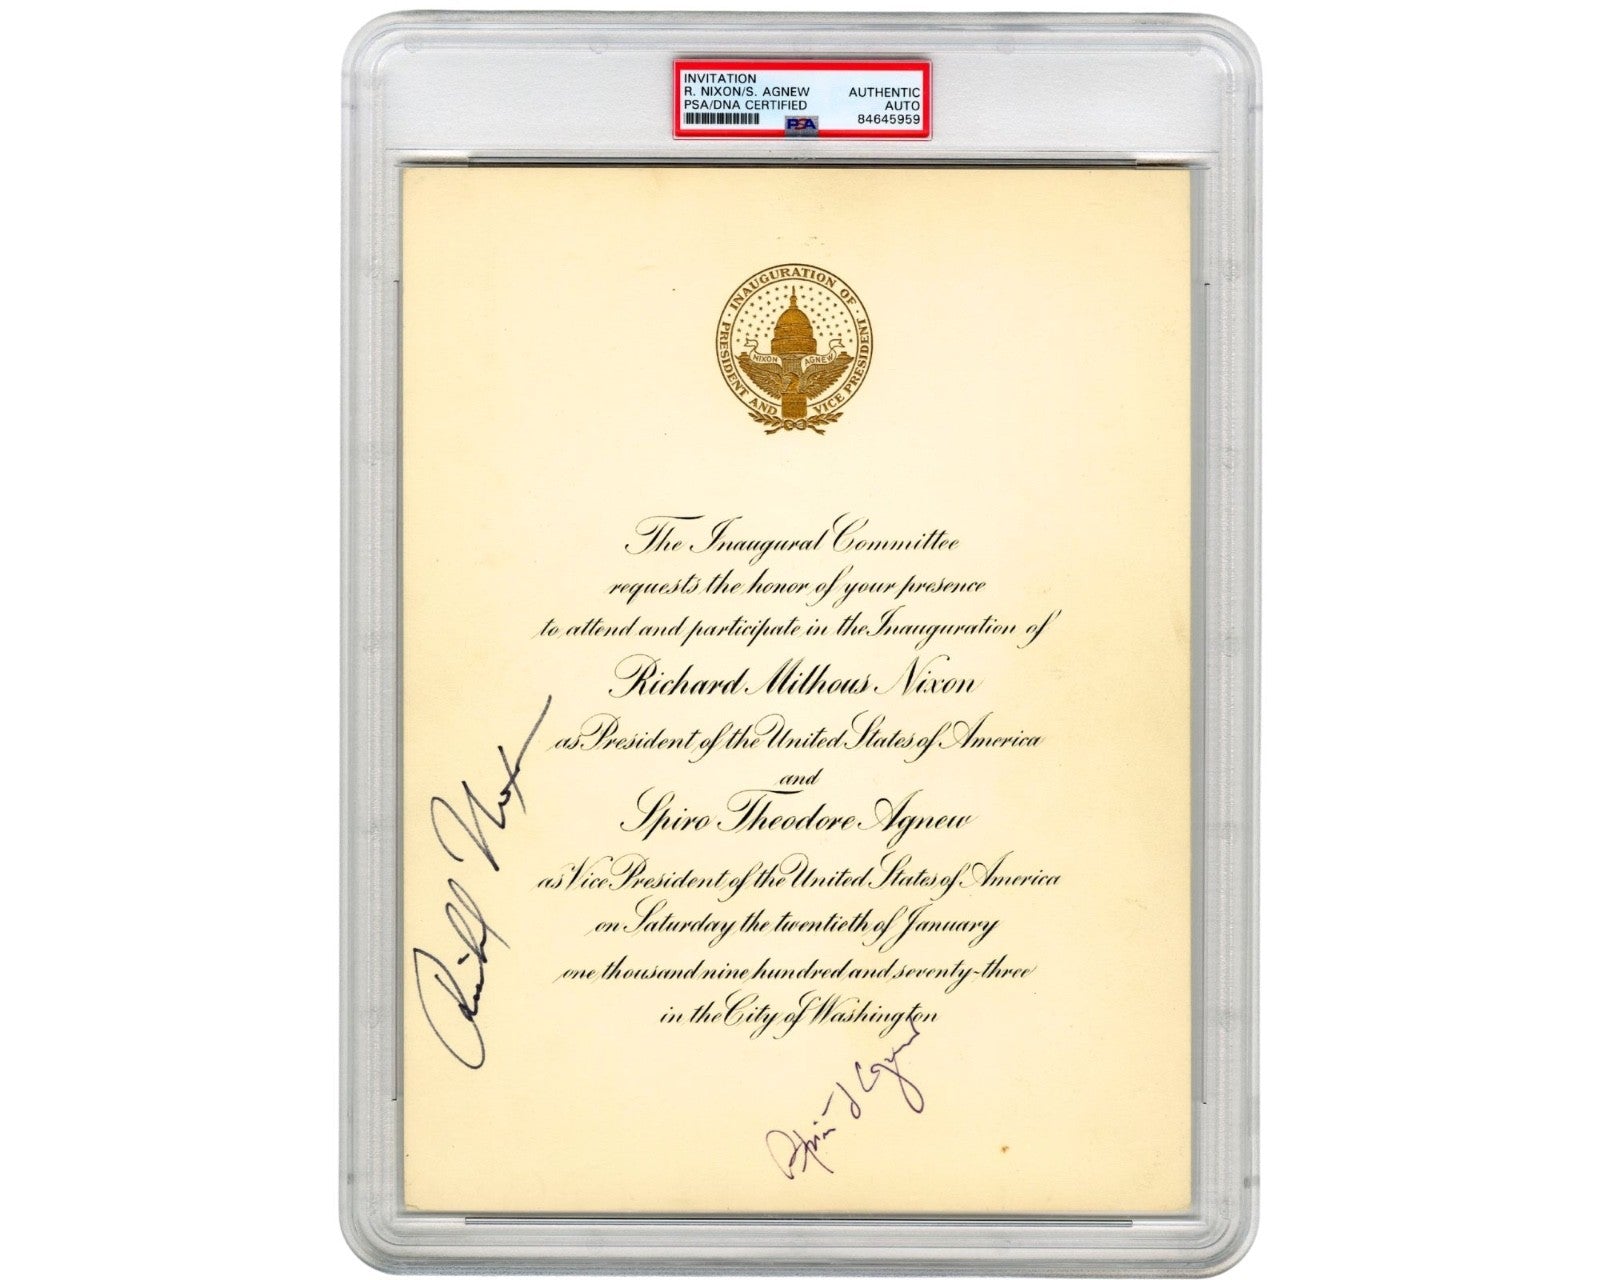 INVITATION
R. NIXON/S. AGNEW AUTHENTIC
PSA/DNA CERTIFIED AUTO
PSA 84645959
INAUGURATION OF PRESIDENT AND VICE PRESIDENT
NIXON AGNEW
The Inaugural Committee
requests the honor of your presence
to attend and participate in the Inauguration of
Richard Milhous Nixon
as President of the United States of America
and
Spiro Theodore Agnew
as Vice President of the United States of America
on Saturday the twentieth of January
one thousand nine hundred and seventy-three
in the City of Washington
Richard Nixon
Spiro T Agnew